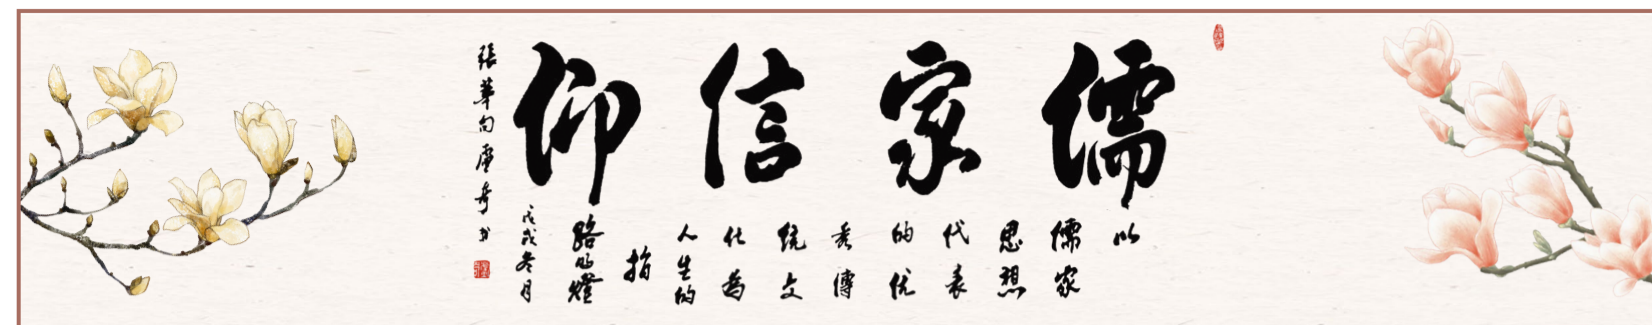 儒家信仰
以
儒家
思想
代表
的优
秀傳
统文
化為
人生的
指
路明燈
戊戌冬月
張華句 书